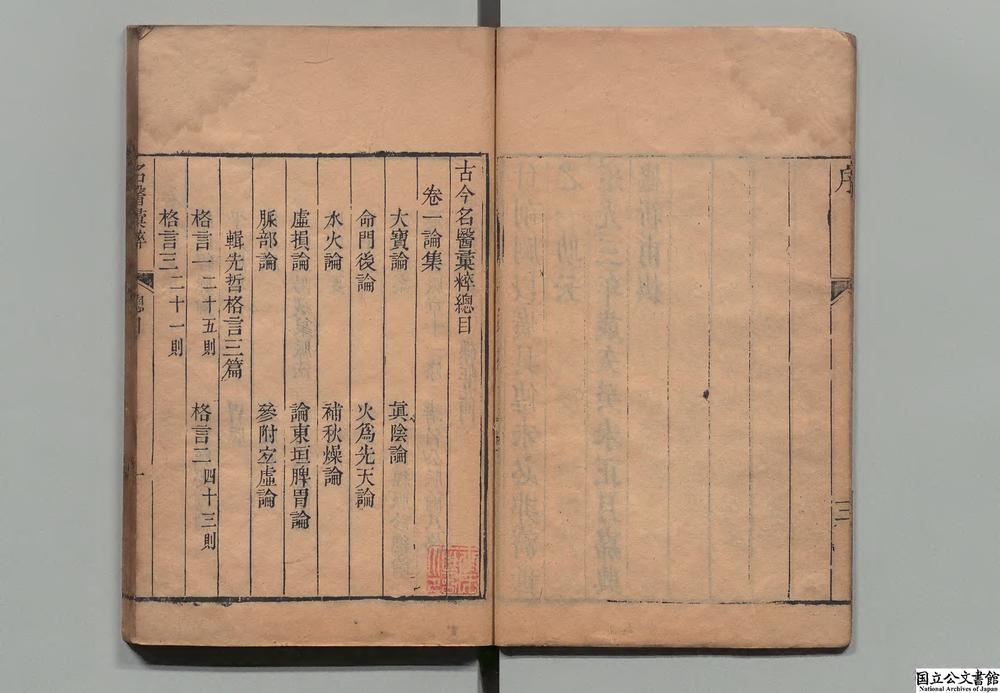 序
三
古今名醫彙粹總目
卷一論集
大寶論 眞陰論
命門後論 火爲先天論
水火論 補秋燥論
虛損論 論東垣脾胃論
脈部論 參附宜虛論
輯先哲格言三篇
格言一 二十五則 格言二 四十三則
格言三 二十一則
名醫彙粹
總目
一
国立公文書館
National Archives of Japan